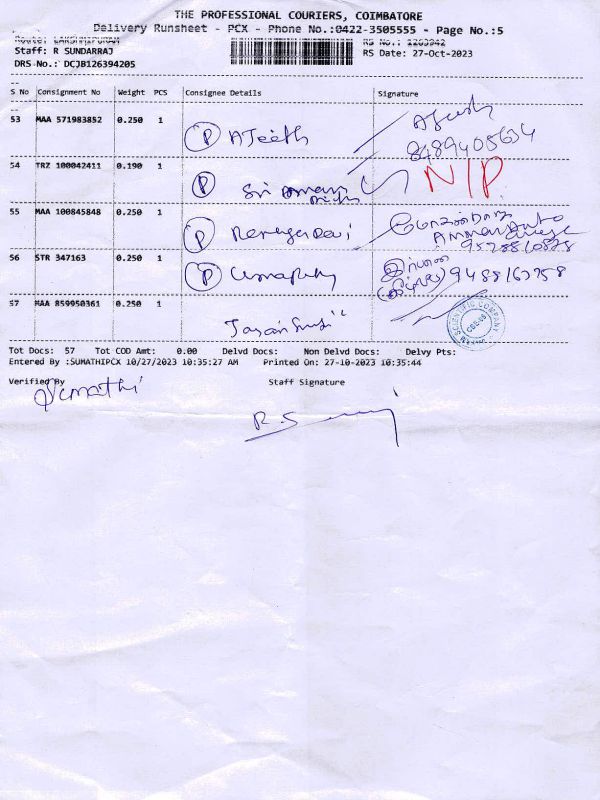 THE PROFESSIONAL COURIERS, COIMBATORE
Delivery Runsheet - PCX - Phone No.:0422-3505555 - Page No.:5
Route: LAKSHMIPURAM
Staff: R SUNDARRAJ
DRS No.: DCJB126394205
RS No.: 1263942
RS Date: 27-Oct-2023
S No Consignment No Weight PCS Consignee Details Signature
53 MAA 571983852 0.250 1 P AJeeth Ajeeth
8489405634
54 TRZ 100042411 0.190 1 P Sri N/P
55 MAA 100845848 0.250 1 P Renuga Devi
Amman Auto
9528810828
56 STR 347163 0.250 1 P Umapathy 9488163758
57 MAA 859950361 0.250 1
SCIENTIFIC COMPANY
Tot Docs: 57 Tot COD Amt: 0.00 Delvd Docs: Non Delvd Docs: Delvy Pts:
Entered By :SUMATHIPCX 10/27/2023 10:35:27 AM Printed On: 27-10-2023 10:35:44
Verified By Staff Signature
Sumathi
R.S